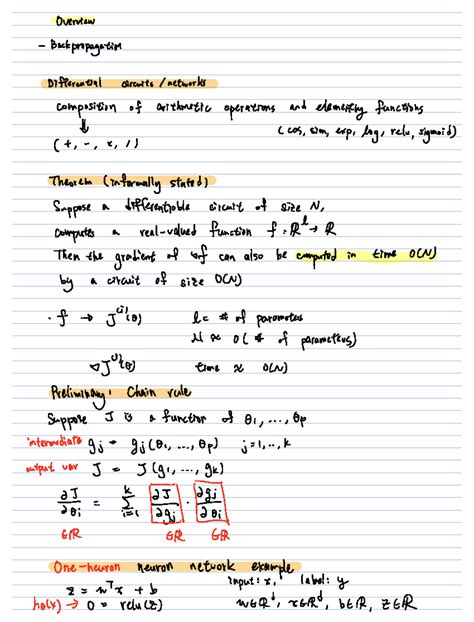 Overview
- Backpropagation
Differential circuits / networks
composition of arithmetic operations and elementary functions
↓ (cos, sin, exp, log, relu, sigmoid)
(+, -, ×, /)
Theorem (informally stated)
Suppose a differentiable circuit of size N,
computes a real-valued function f: ℝ^l → ℝ
Then the gradient of ∇f can also be computed in time O(N)
by a circuit of size O(N)
· f → J^(i)(θ) l = # of parameters
N ≈ O(# of parameters)
∇J^(i)(θ) time ≈ O(N)
Preliminary: Chain rule
Suppose J is a function of θ₁, ..., θp
intermediate gj = gj(θ₁, ..., θp) j=1, .., k
output var J = J(g₁, ..., gk)
∂J/∂θi = Σ_{i=1}^{k} ∂J/∂gj · ∂gj/∂θi
∈ℝ ∈ℝ ∈ℝ
One-neuron neuron network example
input: x, label: y
z = wᵀx + b
hθ(x) → o = relu(z) w∈ℝ^d, x∈ℝ^d, b∈ℝ, z∈ℝ